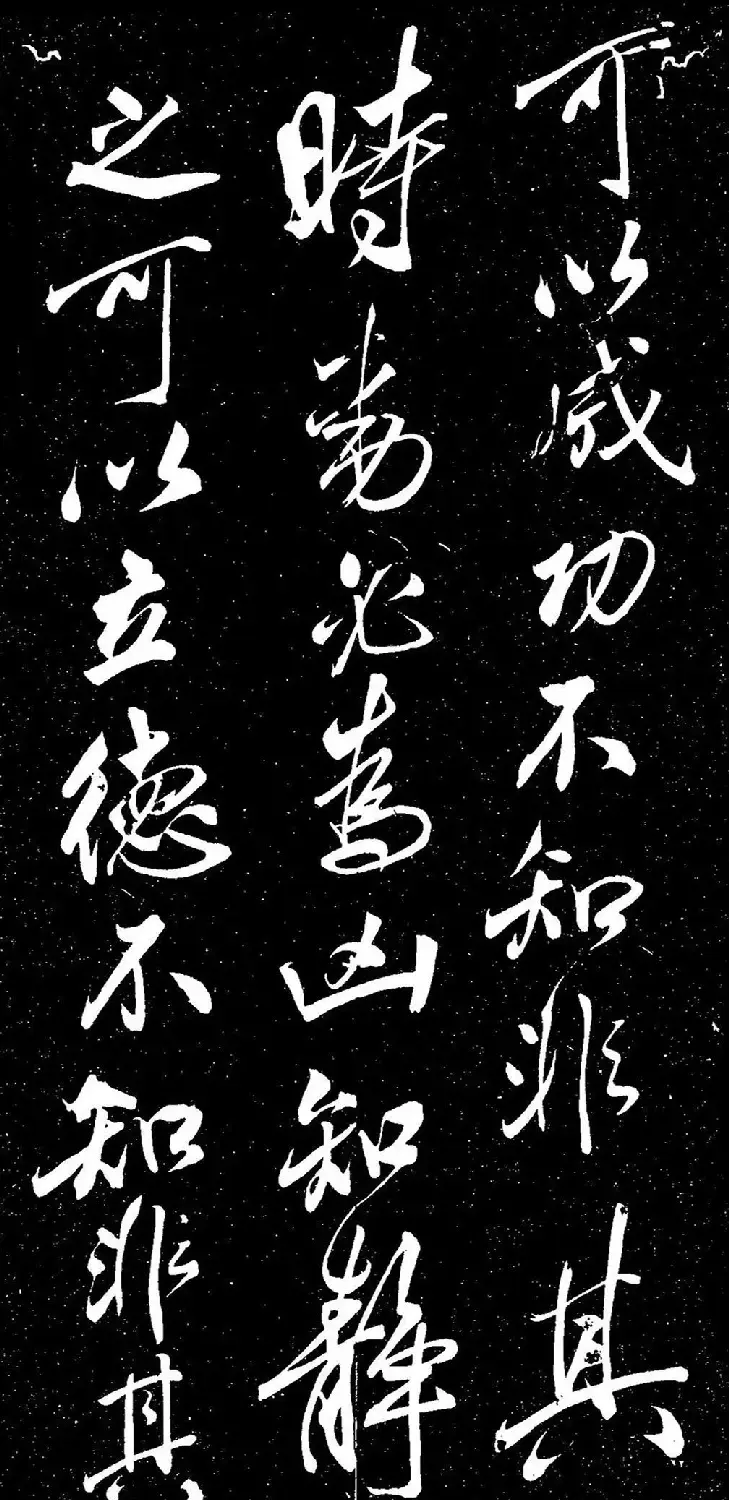 可以成功不知非其
時動必為凶知靜
之可以立德不知非其